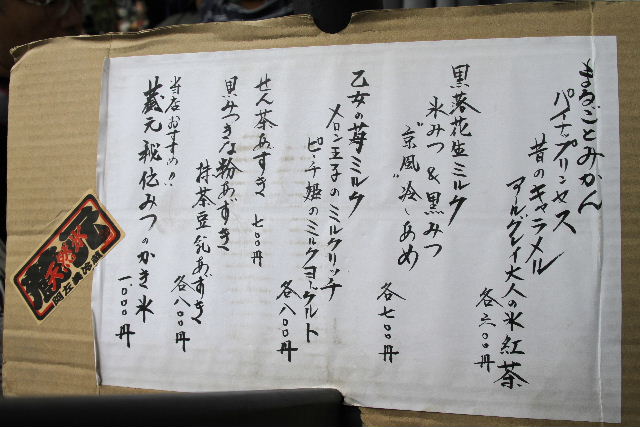 まるごとみかん
パイナップリンセス
昔のキャラメル
アールグレイ大人の氷紅茶
各六〇〇円
黒落花生ミルク
氷みつ&黒みつ
"京風"冷しあめ
各七〇〇円
乙女の苺ミルク
メロン王子のミルクリッチ
ピーチ姫のミルクヨーグルト
各八〇〇円
せん茶あずき 七〇〇円
黒みつきな粉あずき
抹茶豆乳あずき
各八〇〇円
当店おすすめ!!
蔵元秘伝みつのかき氷
一、〇〇〇円
天然氷
蔵元